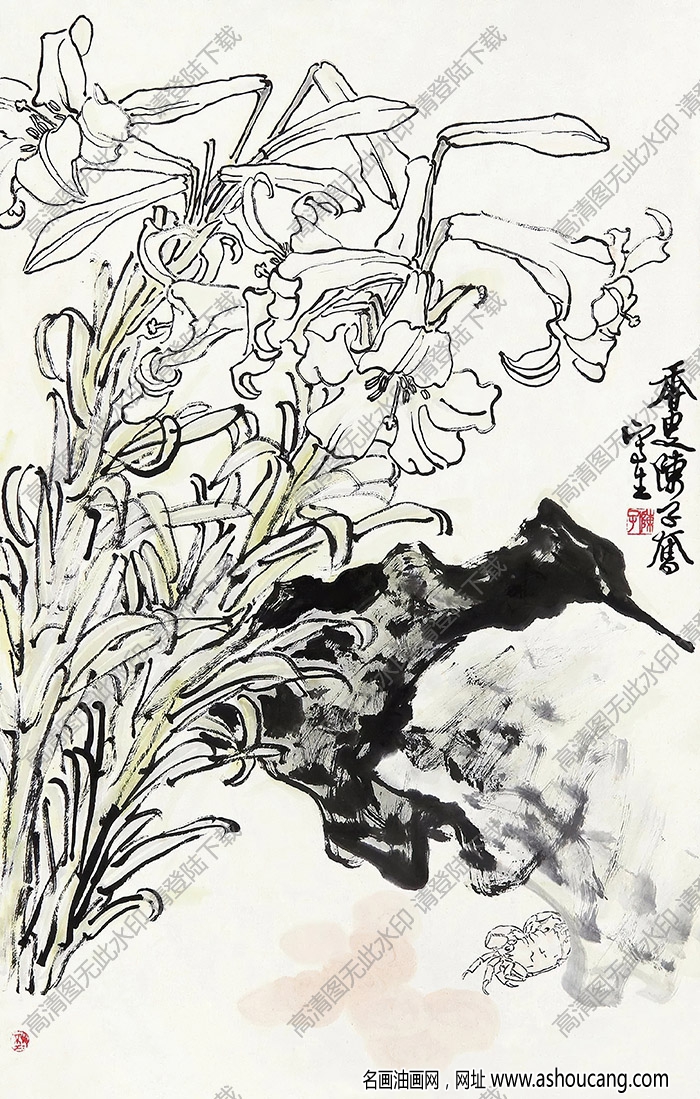 香叟陳子奮
寫生
高清图无此水印 请登陆下载
名画油画网，网址 www.ashoucang.com